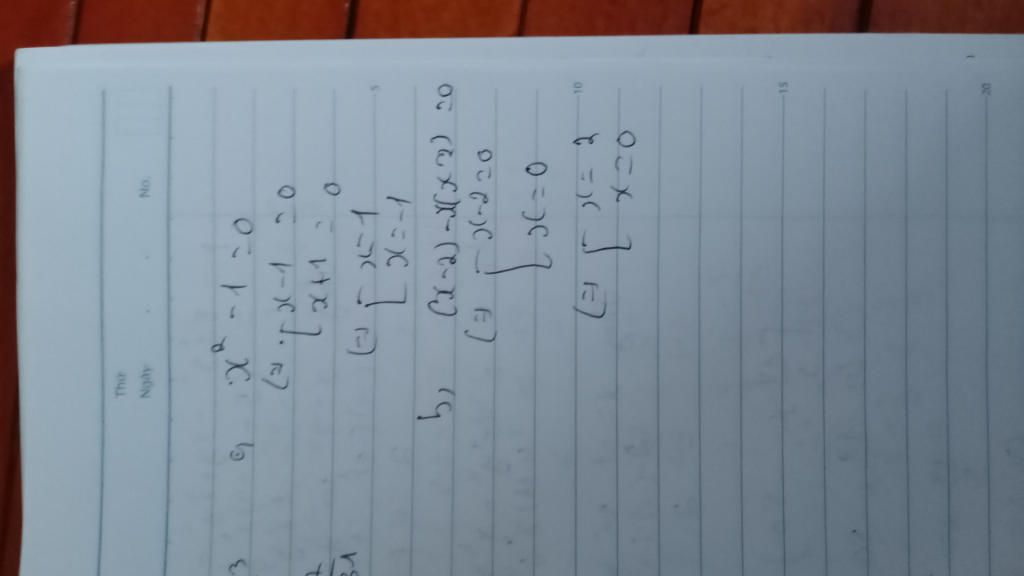 Thứ
Ngày No.
a, x² - 1 = 0
(=) [ x-1 = 0
x+1 = 0
(=) [ x = 1
x = -1
5
b, (x-2) - x(x-2) = 0
(=) [ x-2 = 0
x = 0
10
(=) [ x = 2
x = 0
15
20
3
31